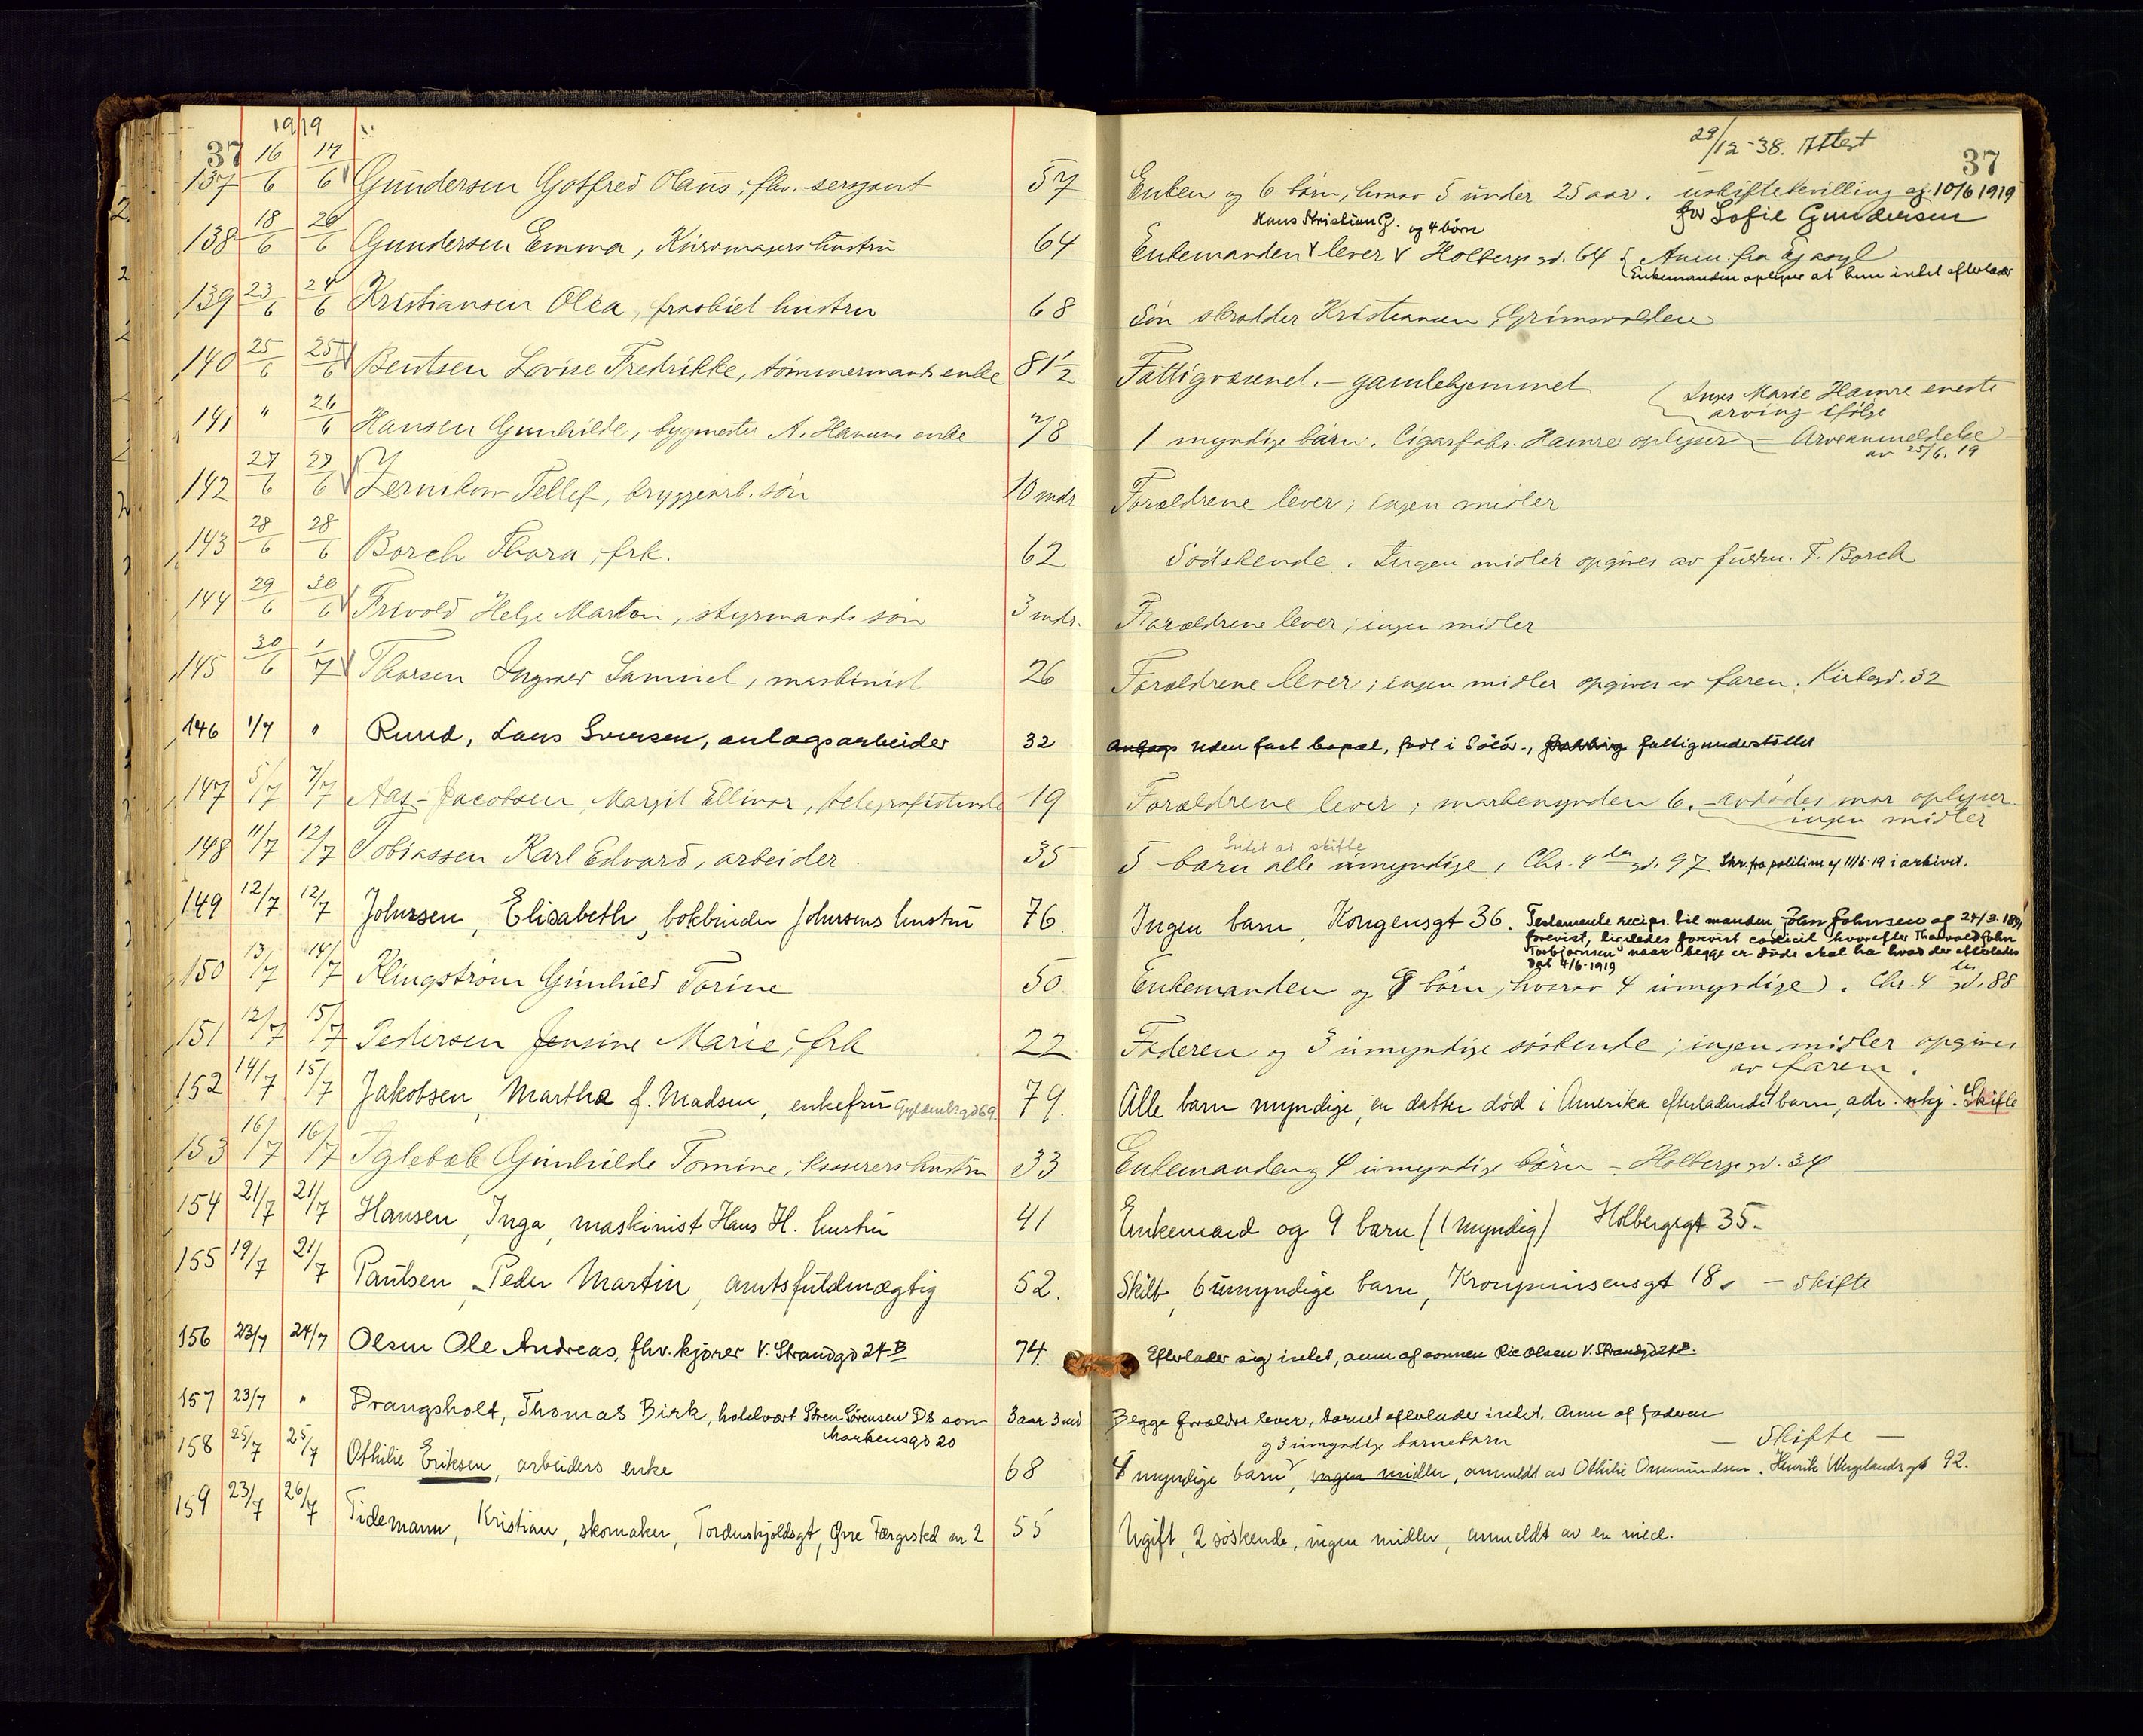 1919
37
137 16/6 17/6 Gundersen Gotfred Olaus, fhv. sersjant 57
138 18/6 20/6 Gundersen Emma, hustru 64
139 23/6 24/6 Kristiansen Olea, fraskilt hustru 68
140 25/6 25/6 Bentsen Lovise Fredrikke, tømmermands enke 81 1/2
141 " 26/6 Hansen Gunhilde, bygmester A. Hansens enke 78
142 27/6 27/6 Zernikow Tellef, bryggearb. søn 10 mdr
143 28/6 28/6 Borch Thora, frk. 62
144 29/6 30/6 Trivold Helge Martin, styrmands søn 3 mdr.
145 30/6 1/7 Thorsen Ingvald Samuel, maskinist 26
146 1/7 " Ruud, Lars Iversen, anlægsarbeider 32
147 5/7 7/7 Aas-Jacobsen Margit Ellinor, telegrafistinde 19
148 11/7 12/7 Tobiassen Karl Edvard, arbeider 35
149 12/7 12/7 Johnsen, Elisabeth, bokbinder Johnsens hustru 76.
150 13/7 14/7 Klingström Gunhild Torine 50
151 12/7 15/7 Pedersen Jensine Marie, frk 22
152 14/7 15/7 Jakobsen, Martha f. Madsen, enkefru Gyldenl.gd 69. 79.
153 16/7 16/7 Gunhilde Tomine, kasserers hustru 33
154 21/7 21/7 Hansen, Inga, maskinist Hans H. hustru 41
155 19/7 21/7 Paulsen, Peder Martin, amtsfuldmægtig 52.
156 23/7 24/7 Olsen Ole Andreas, fhv. kjører V. Strandgd 24B 74.
157 23/7 " Drangsholt, Thomas Birk, hotelvært Søren Sørensen Ds søn 3 aar 3 md
Markensgd 20
158 25/7 25/7 Othilie Eriksen, arbeiders enke 68
159 23/7 26/7 Tidemann, Kristian, skomaker, Tordenskjoldsgt, Øvre Færgested nr 2 55
29/12-38. Attest
37
Enken og 6 børn, hvorav 5 under 25 aar. uskiftebevilling af 10/6 1919
for Sofie Gundersen
Hans Kristian G. og 4 børn
Enkemanden lever Holbergs gd. 64 Anm. fra Eg asyl
Enkemanden oplyser at hun intet efterlader
Søn skrædder Kristiansen, Grimsvolden
Fattigvæsenet. - gamlehjemmet
Inger Marie Hamre eneste
arving ifølge
1 myndige barn. Cigarfabr. Hamre oplyser - Arveanmeldelse
av 25/6. 19
Forældrene lever; ingen midler
Sødskende. Ingen midler opgives av T. Borch
Forældrene lever; ingen midler
Forældrene lever; ingen midler opgives av faren. Kirkegd. 32
uden fast bopæl, født i Solør., fattigunderstøttet
Forældrene lever; markensgden 6. - avdødes mor oplyser
ingen midler
Intet at skifte
5 barn alle umyndige, Chr. 4 des gd. 97 Skr. fra politiet af 11/6-19 i arkivet.
Ingen barn, Kongensgt 36. Testamente recipr. til manden John Johnsen af 24/3. 1891
forevist, ligeledes forevist codicil hvorefter Thorvald John
Torbjørnsen naar begge er døde skal ha hvad der efterlades
dat 4/6-1919
Enkemanden og 8 børn, (hvorav 4 umyndige). Chr. 4 des gd. 88
Faderen og 3 umyndige søskende; ingen midler opgives
av faren.
Alle barn myndige, en datter død i Amerika efterladende 4 barn, adr. ukj. Skifte
Enkemanden og 4 umyndige børn - Holbergs gd. 34
Enkemand og 9 barn (1 myndig) Holbergsgt 35.
Skilt, 6 umyndige barn, Kronprinsensgt 18. - Skifte
Efterlader sig intet, anm af sønnen Olsen V. Strandgd 24B.
Begge forældre lever, barnet efterlader intet. Anm af faderen
og 3 umyndige barnebarn - Skifte -
4 myndige barn, ingen midler, anmeldt av Othilie Ommundsen. Henrik Wergelands gt 92.
Ugift, 2 søskende, ingen midler, anmeldt av en niece.